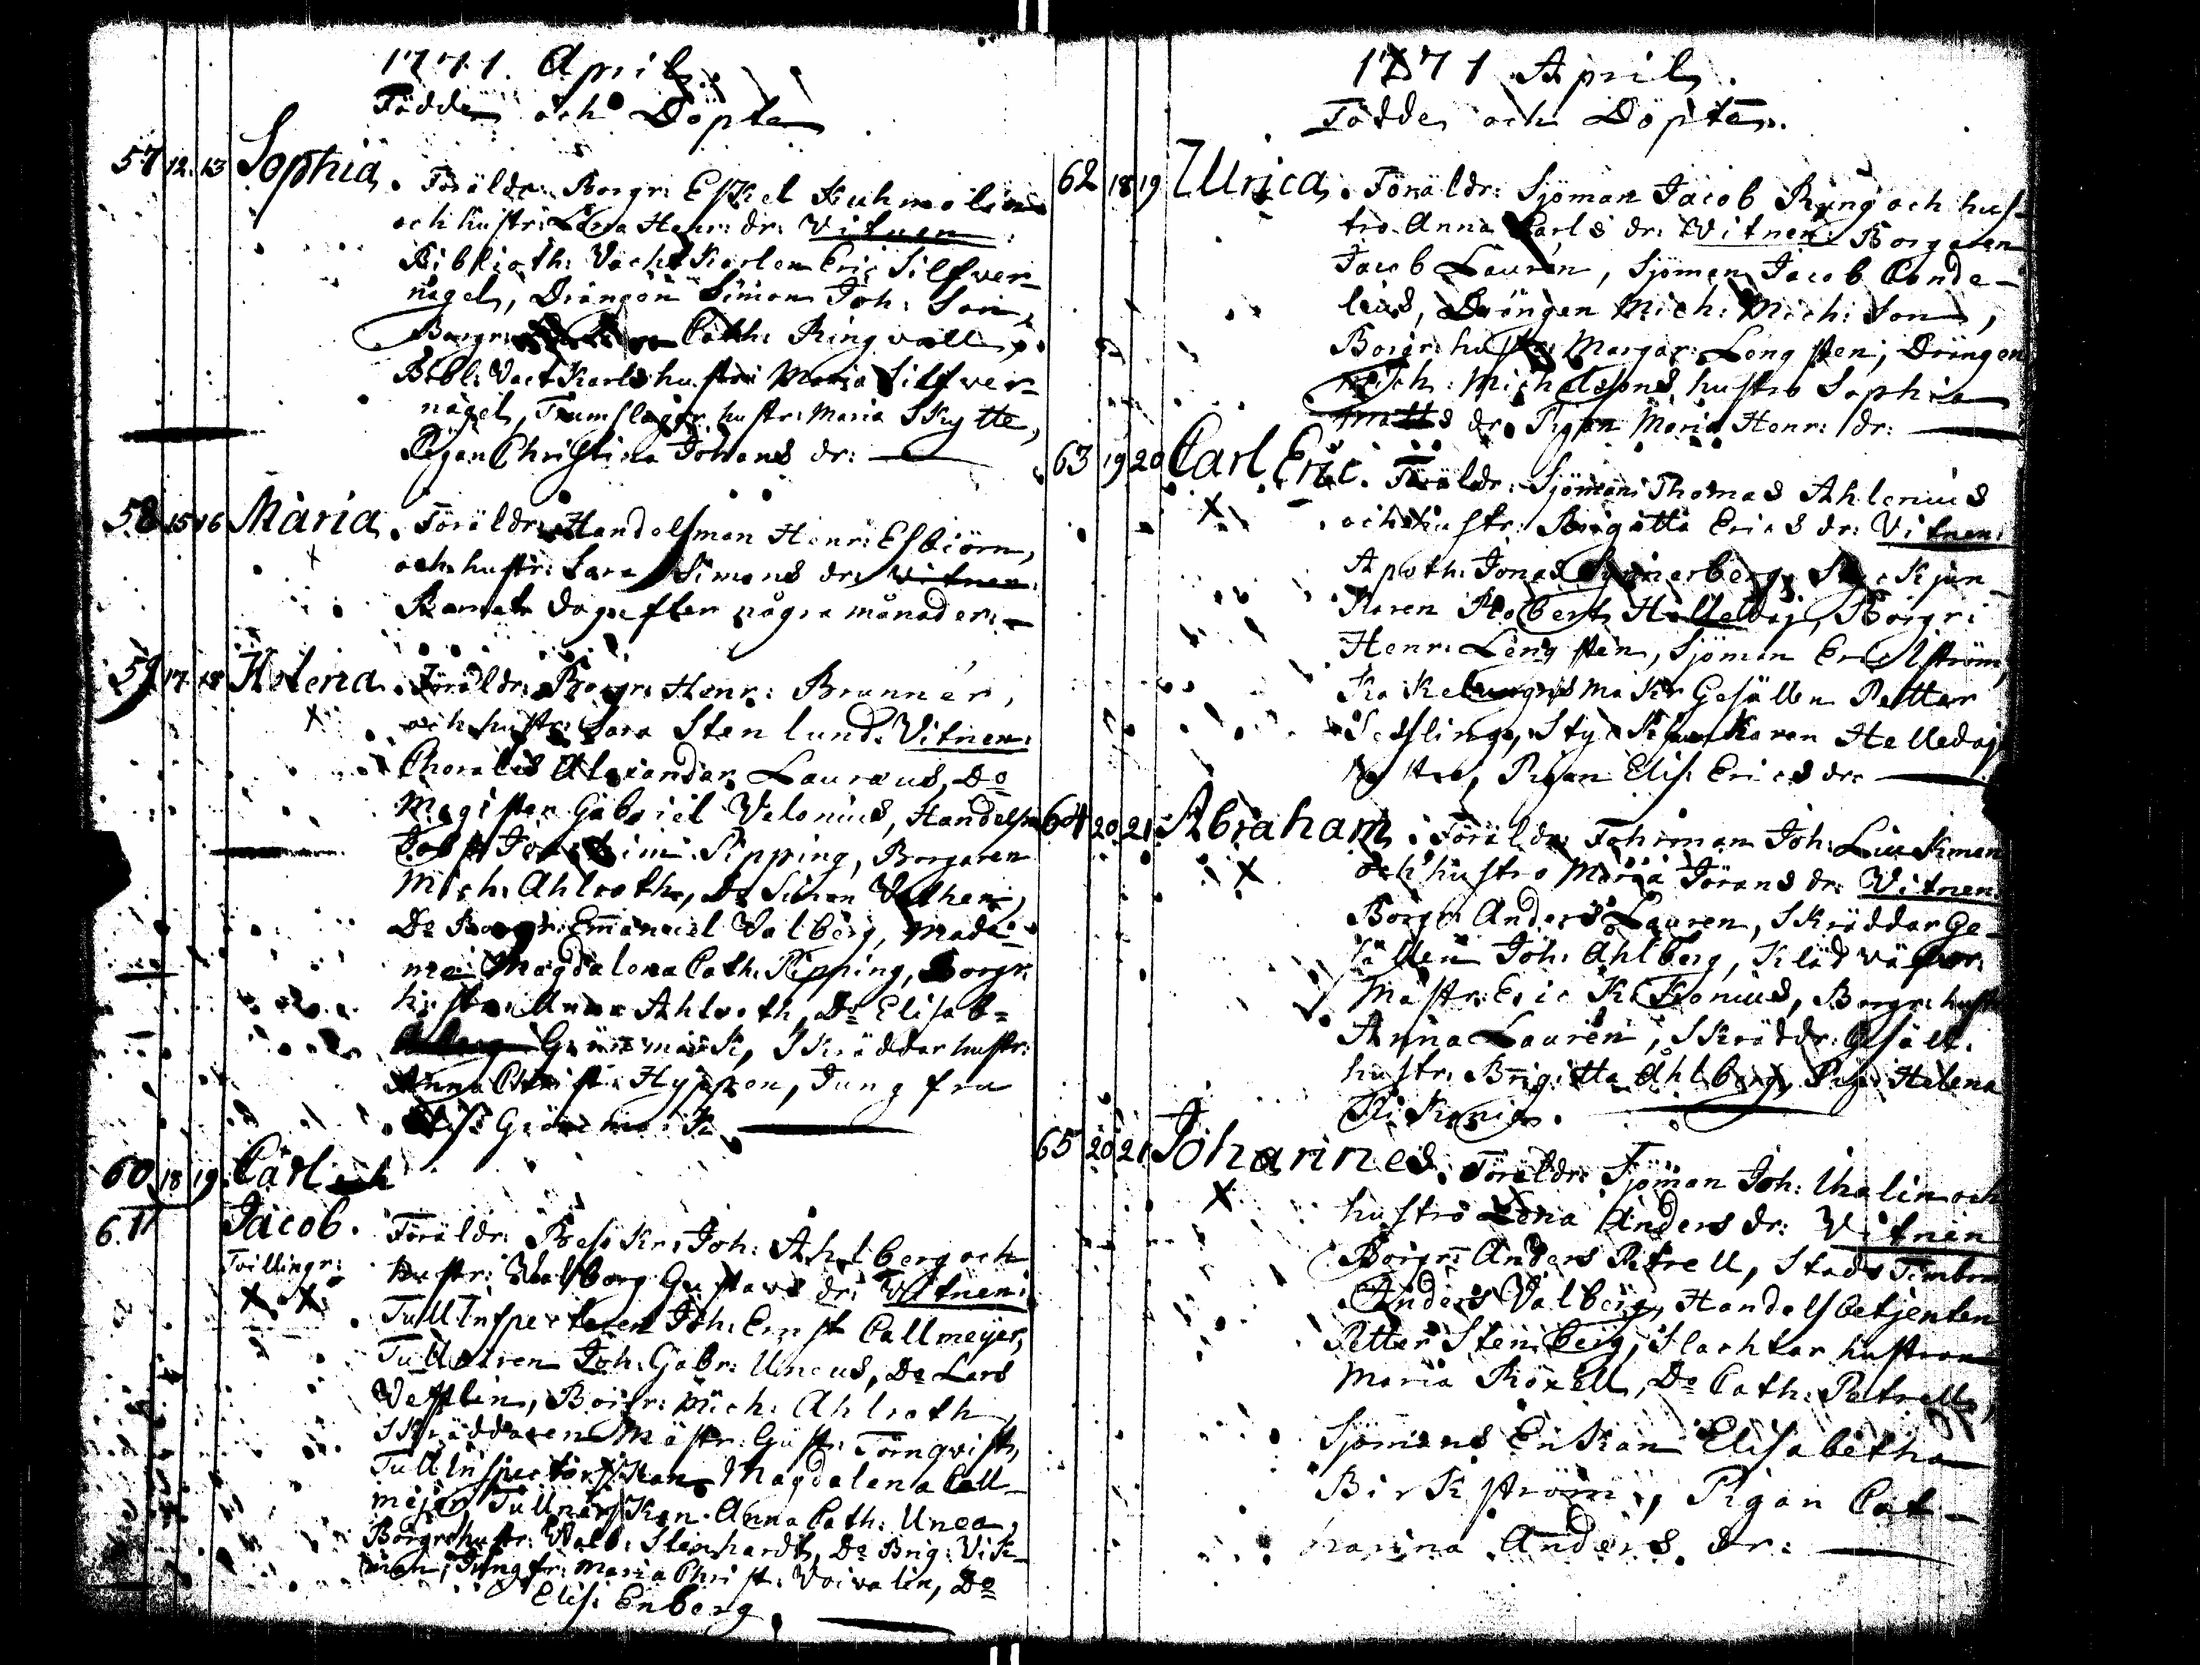 1771. April.
Födde och Döpte
57 12. 13 Sophia. Föräldr: Borgr: Eskel Kuhmolin
och hustr: Lena Henr: dr: Vitnen:
Biblioth: Vacht Karlen Eric Silfver-
nagel, Drängen Simon Joh: Son,
Borgr: Cath: Ringvall,
Bibl: Vact Karls hustru Maria Silfver-
nagel, Trumslagr hustr: Maria Skytte,
Pigan Christina Johans dr:
58 15 16 Maria. Föräldr: Handelsman Henr: Esbiörn,
och hustr: Sara Simons dr: Vitnen:
några månader.
59 17. 18 Helena. Föräldr: Borgr: Henr: Brunnér,
och hustr: Sara Stenlund. Vitnen:
Alexander Lauræus, Do
Magister Gabriel Velonius, Handelsm
Kipping, Borgaren
Mich: Ahlroth, Do Simon Vathen,
Do Borgr: Emanuel Valberg, Mada-
me Magdalena Cath: Kipping, Borgr:
hustr: Anna Ahlroth, Do Elisab-
Grönmark, Skräddar hustr:
Anna Christ: Hyppen, Jungfru
Elis: Grönmark.
60 18 19 Carl och
61 Jacob. Föräldr: Besökr: Joh: Ahlberg och
Tvillingr: hustr: Valborg Gustavs dr: Vitnen:
Tull Inspectoren Joh: Ernst Callmeyer,
Tullnären Joh: Gabr: Uneus, Do Lars
Vestlin, Borgr: Mich: Ahlroth,
Skräddaren Mästr: Gust: Törnqvist,
Tull Inspectorskan Magdalena Call-
mejer, Tullnärskan Anna Cath: Unea,
Borgr hustr: Valb: Steinhardt, Do Brig: Vik-
man, Jungfr: Maria Christ: Voivalin, Do
Elis: Enberg.
1771 April.
Födde och Döpte.
62 18 19 Ulrica. Föräldr: Sjöman Jacob Ring och hus-
tro Anna Carls dr: Vitnen: Borgaren
Jacob Laurén, Sjöman Jacob Conde-
lius, Drängen Mich: Mich: Son,
Borgr: hustr: Margar: Longsten, Drängen
Mich: Michelsons hustro Sophia
Matts dr, Pigan Maria Henr: dr:
63 19 20 Carl Eric. Föräldr: Sjöman Thomas Ahlenius
och hustr: Brigitta Erics dr: Vitnen:
Apoth: Jonas Synnerberg, Styckjun-
karen Robert Helledaj, Borgr:
Henr: Longsten, Sjöman Eric Alström,
Kakelungnsmakr Gesällen Petter
Sessling, Styckjunkaren Helledajs
hustro, Pigan Elis: Erics dr:
64 20 21 Abraham. Föräldr: Tohrman Joh: Liuskman
och hustro Maria Jörans dr: Vitnen:
Borgr: Anders Lauren, Skräddar Ge-
sällen Joh: Ahlberg, Klädväfvar
Mästr: Eric Kikonius, Borgr: hustr
Anna Laurén, Skräddr: Gesäll:
hustr: Brigitta Ahlberg, Pig: Helena
Kikonia.
65 20 21 Johannes. Föräldr: Sjöman Joh: Thalin och
hustro Lena Anders dr: Vitnen
Borgr: Anders Petrell, Stads Timbrm
Anders Valberg, Handelsbetjenten
Petter Stenberg, Slachtar hustron
Maria Roxell, Do Cath: Petrell,
Sjömans Enkan Elisabetha
Birkström, Pigan Cat-
harina Anders dr: